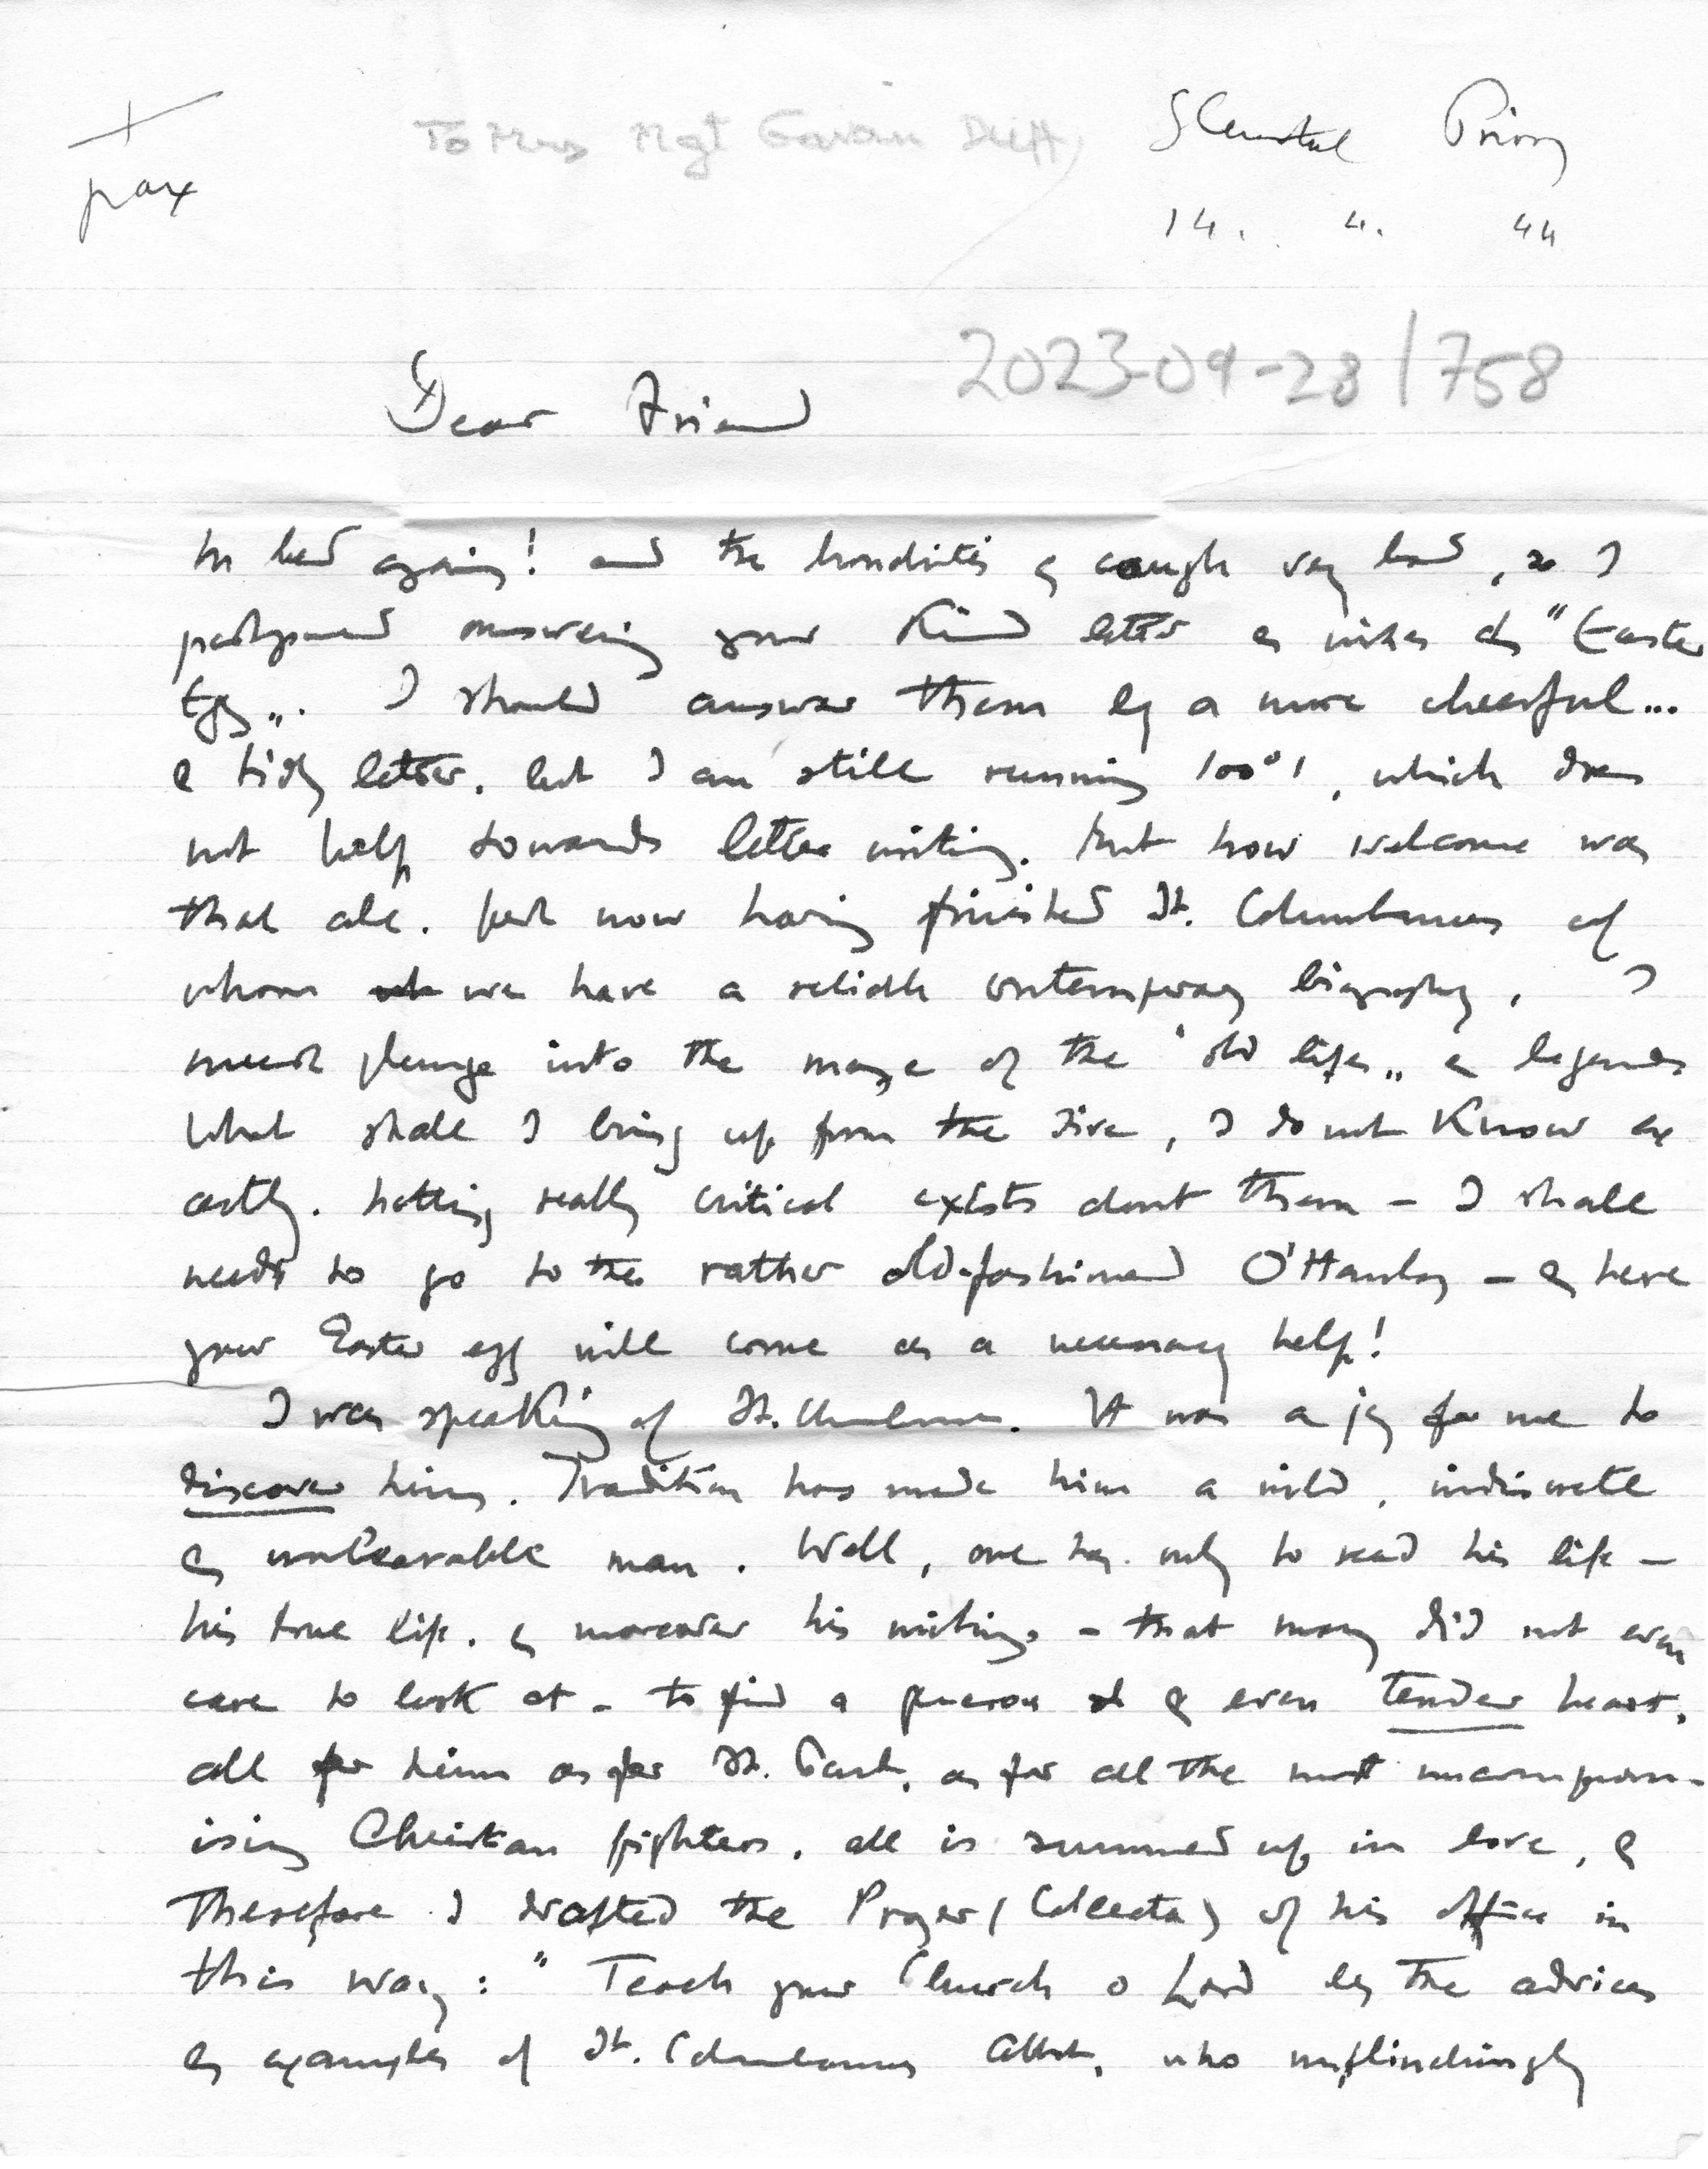 +
pax
To Mrs Mgt Gavan Duffy
Glenstal Priory
14. 4. 44
2023-09-28/758
Dear Friend
In bed again! and the bronchitis & cough very bad, so I
postponed answering your kind letter & wishes & "Easter
Egg„. I should answer them by a more cheerful...
& tidy letter, but I am still running 100°1, which does
not help towards letter writing. But how welcome was
that all. Just now having finished St. Columbanus of
whom we have a reliable contemporary biography, I
must plunge into the maze of the "old lifes„ & legends
What shall I bring up from the dive, I do not know ex
actly. Nothing really critical exists about them - I shall
needs to go to the rather old-fashioned O'Hanlon - & here
your Easter egg will come as a necessary help!
I was speaking of St. Columbanus. It was a joy for me to
discover him. Tradition has made him a wild, indiscrete
& unbearable man. Well, one has only to read his life -
his true life, & moreover his writings - that many did not even
care to look at - to find a generous & even tender heart.
all for him as for St. Paul, as for all the most uncomprom-
ising Christian fighters, all is summed up in love, &
Therefore I drafted the Prayer (Collecta) of his office in
this way: "Teach your Church o Lord by the advices
& examples of St. Columbanus Abbot, who unflinchingly